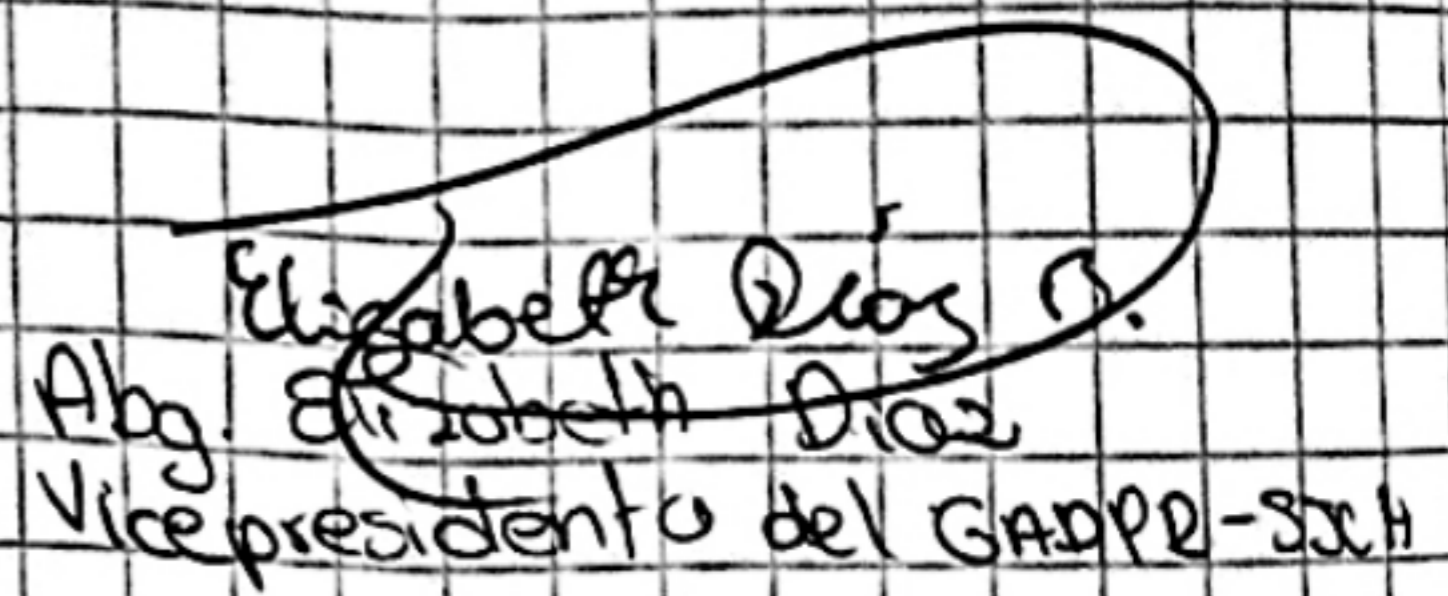 Elizabeth Díaz B.
Abg. Elizabeth Diaz
Vicepresidenta del GADPR-SJCH